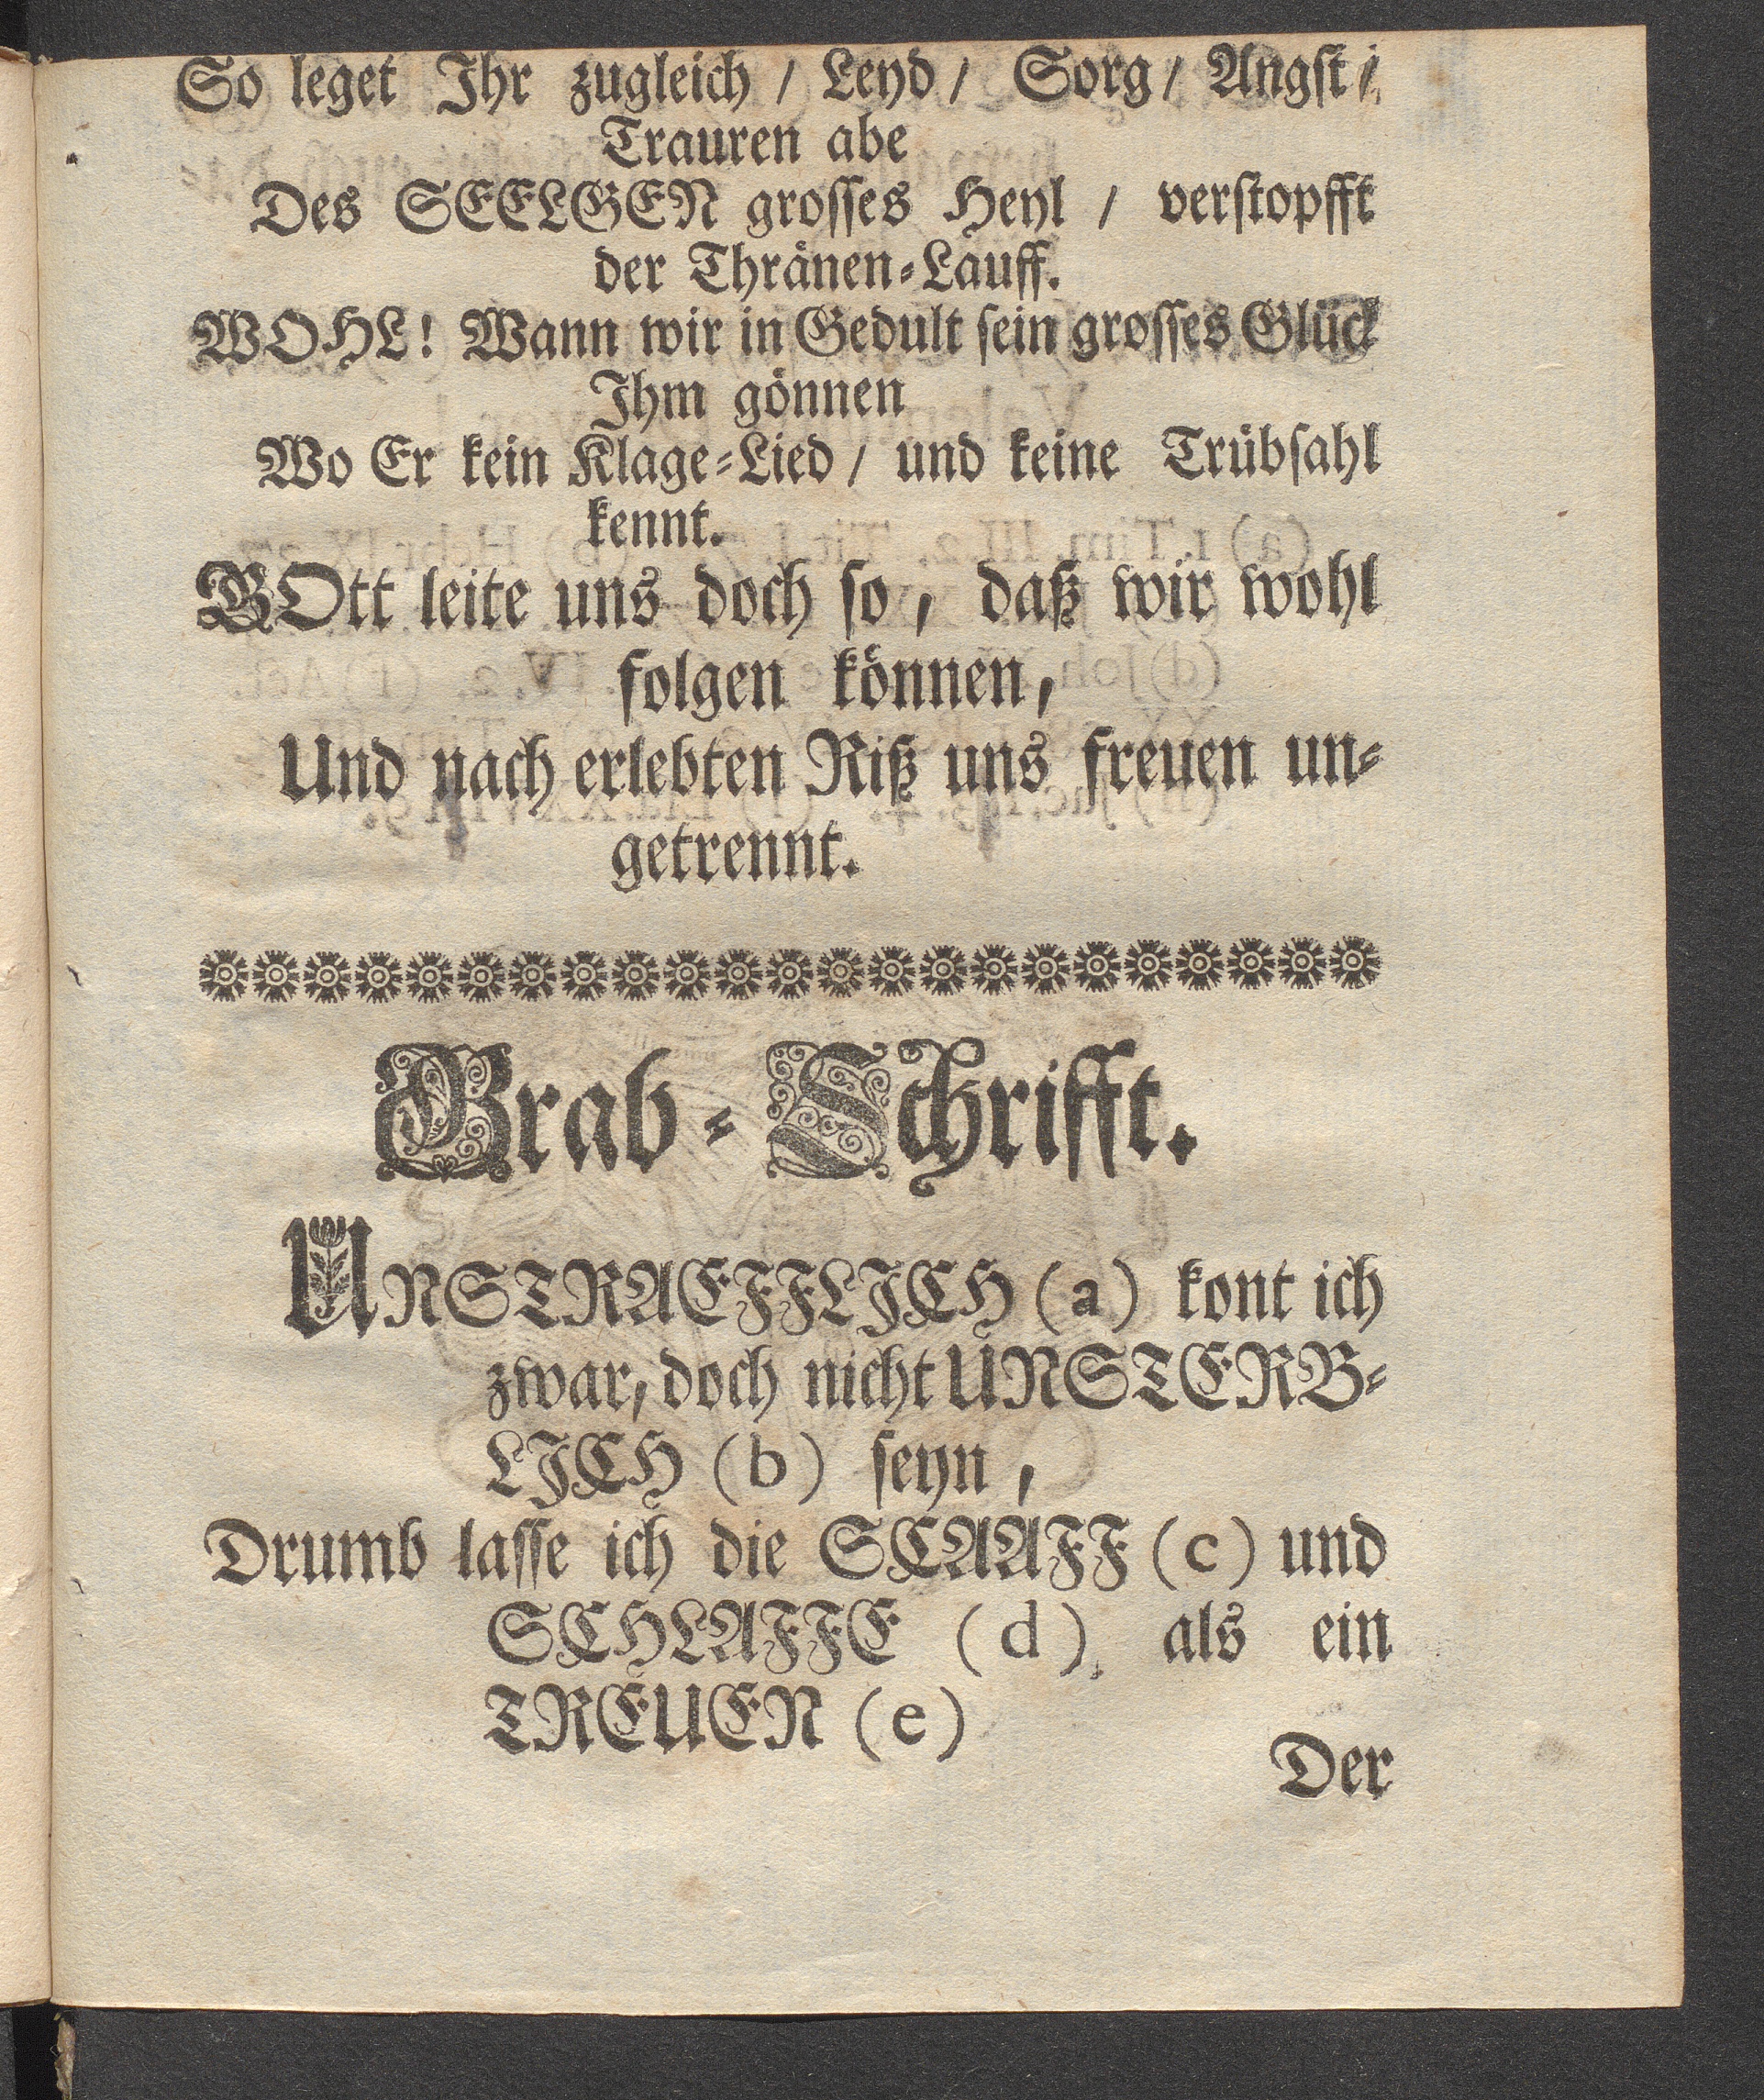 So leget Ihr zugleich / Leyd / Sorg / Angst /
Trauren abe
Des SEELGEN grosses Heyl / verstopfft
der Thränen-Lauff.
WOHL! Wann wir in Gedult sein grosses Glück
Ihm gönnen
Wo Er kein Klage-Lied / und keine Trübsahl
kennt.
GOtt leite uns doch so, daß wir wohl
folgen können,
Und nach erlebten Riß uns freuen un-
getrennt.
Grab-Schrifft.
UNSTRAEFFLJCH (a) kont ich
zwar, doch nicht UNSTERB-
LJCH (b) seyn,
Drumb lasse ich die SCAAFF (c) und
SCHLAFFE (d) als ein
TREUEN (e)
Der